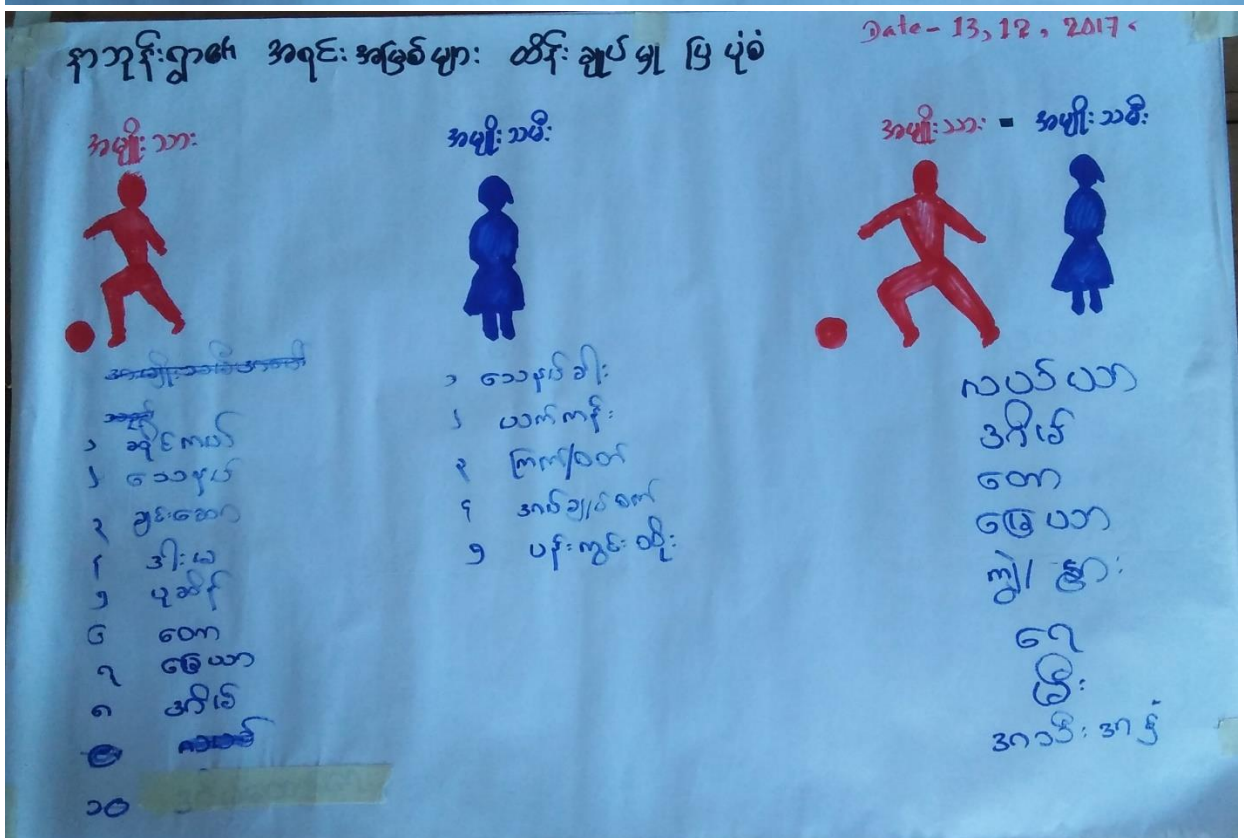 နာဘုန်းရွာ၏ အရင်းအမြစ်များ ထိန်းချုပ်မှု ပြပုံစံ
Date- 13, 12, 2017.
အမျိုးသား
၁ ဆိုင်ကယ်
၂ သေနတ်
၃ ချင်းတောင်း
၄ ဒါးမ
၅ ပုဆိန်
၆ တော
၇ မြေယာ
၈ အိမ်
၁၀
အမျိုးသမီး
၁
၂ ယက်ကန်း
၃ ကြက်/ဝက်
၄ အပ်ချုပ်စက်
၅ ပန်းကွင်းထိုး
အမျိုးသား - အမျိုးသမီး
လယ်ယာ
အိမ်
တော
မြေယာ
ကျွဲ/နွား
ရေ
မြီး
အသီးအနှံ